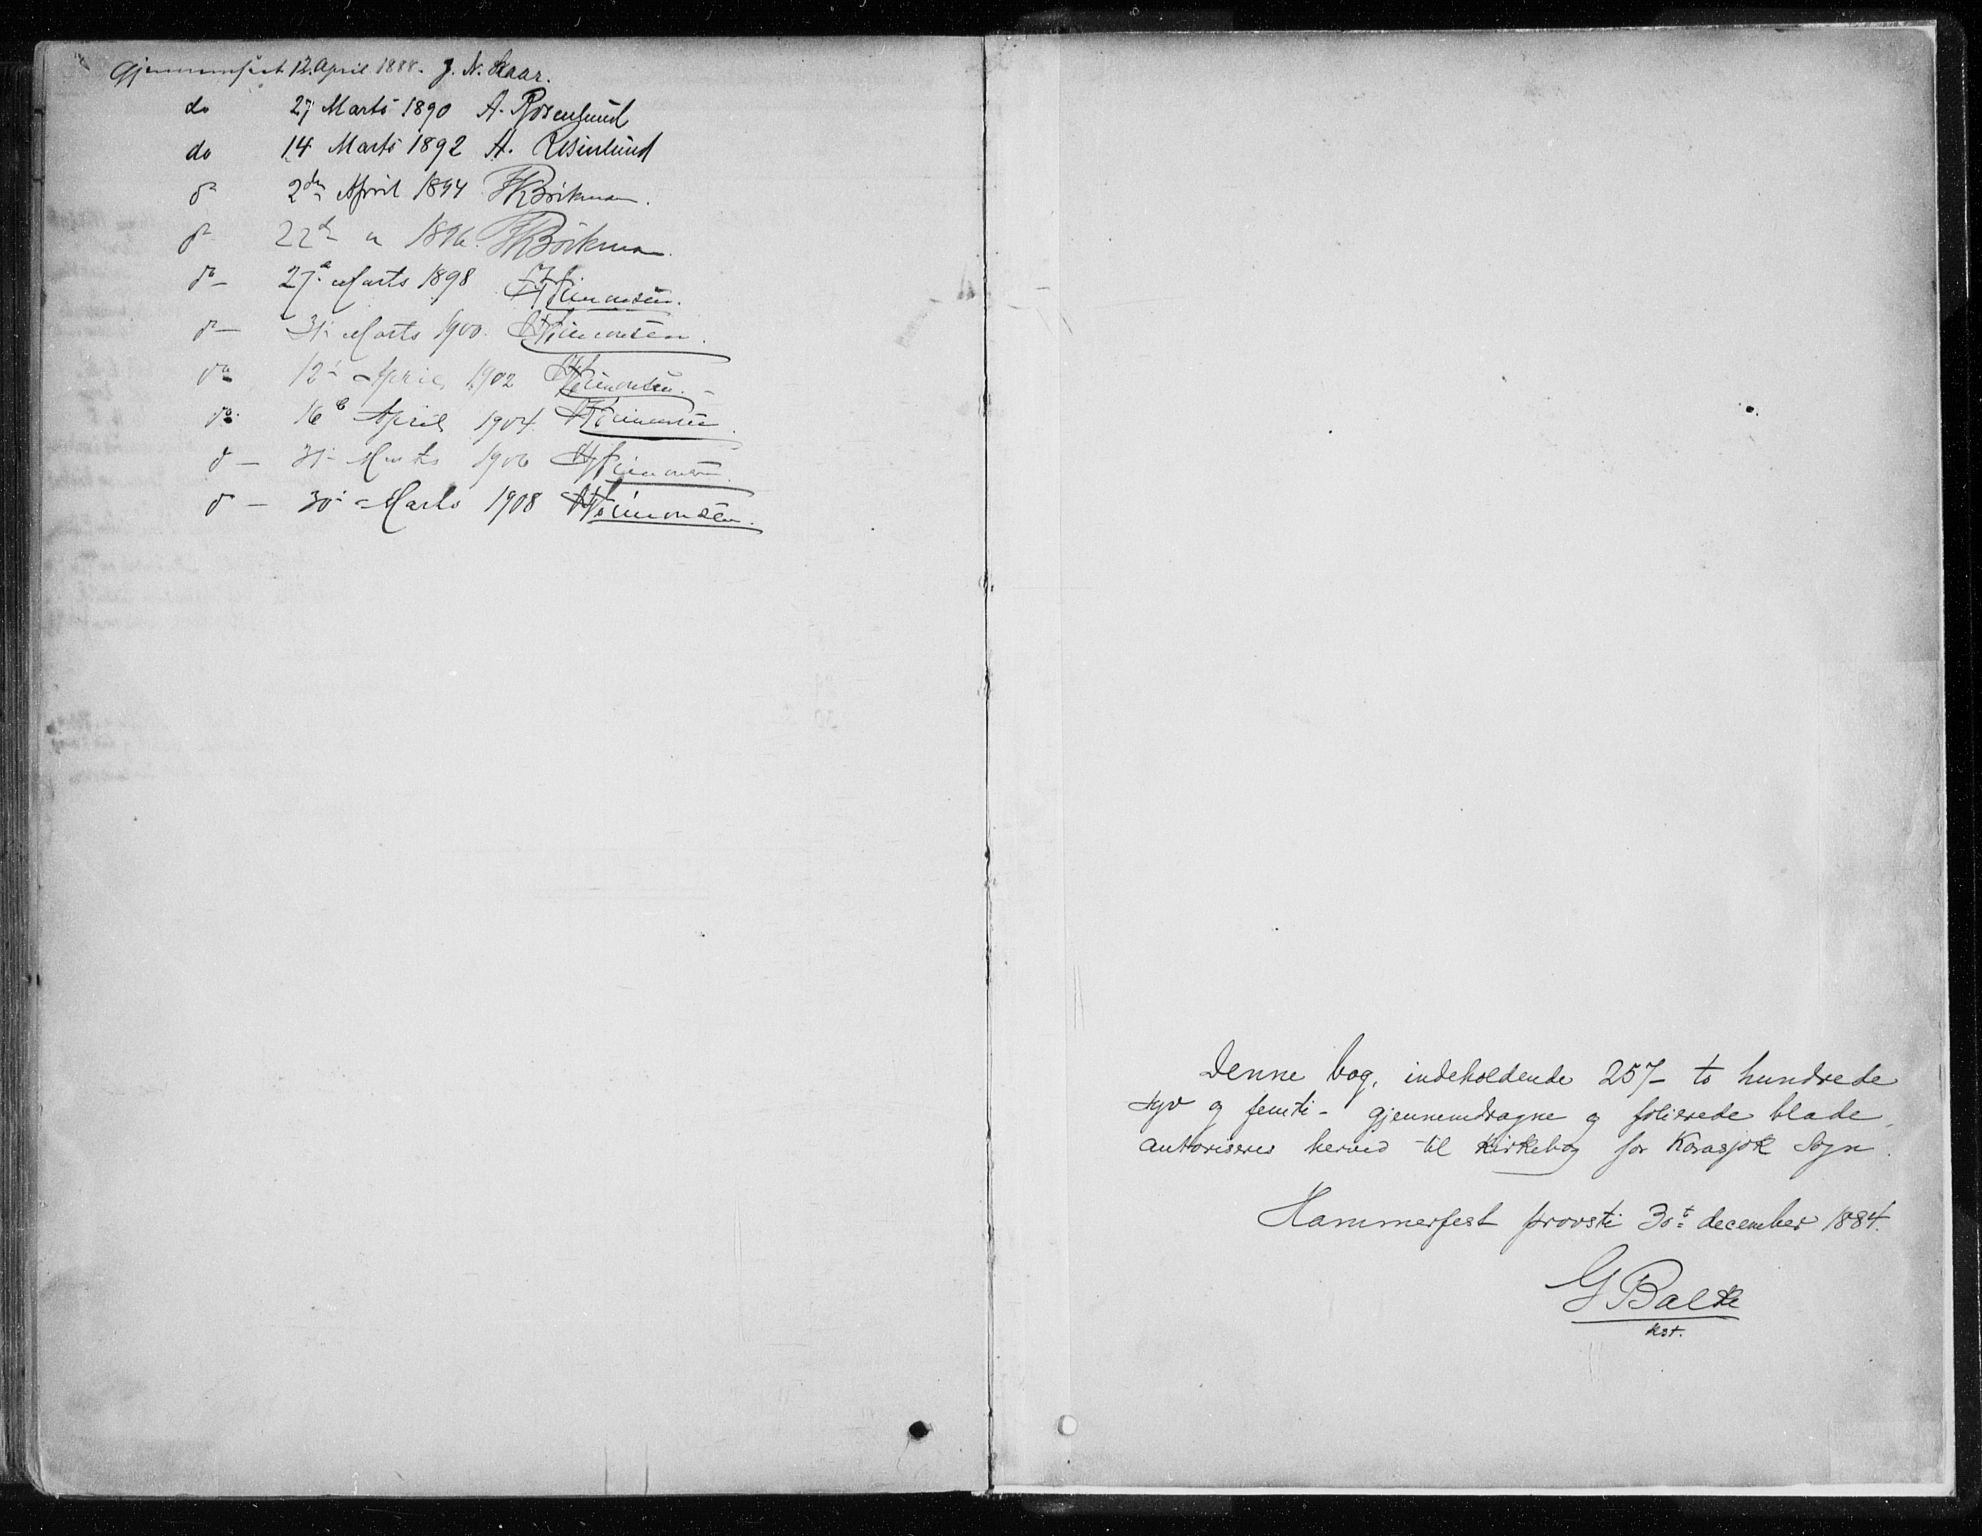 Gjennemseet 12. April 1888. J. N. Skaar.
do 27 Marts 1890 A. Rosenlund
do 14 Marts 1892 A. Rosenlund
do 2den April 1894 Böckman.
do 22de " 1896. Böckman.
do 27de Marts 1898 Simonsen.
do 31te Marts 1900. Simonsen.
do 12te April 1902 Simonsen.
do 16de April 1904. Simonsen.
do 31te Marts 1906 Simonsen.
do 30te Marts 1908 Simonsen.
Denne bog, indeholdende 257 – to hundrede
syv og femti – gjennemdragne og folierede blade,
autoriseres herved til kirkebog for Karasjok Sogn.
Hammerfest provsti 30te december 1884.
G Balke
kst.